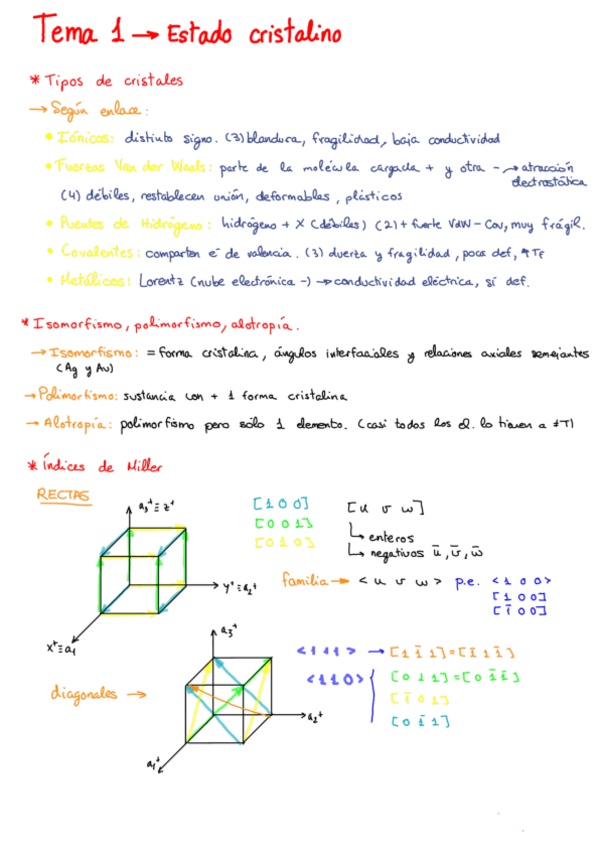 Tema 1 → Estado cristalino
* Tipos de cristales
→ Según enlace:
• Iónicos: distinto signo. (3) blandura, fragilidad, baja conductividad
• Fuerzas Van der Waals: parte de la molécula cargada + y otra - → atracción electrostática
(4) débiles, restablecen unión, deformables, plásticos
• Puentes de Hidrógeno: hidrógeno + X (débiles) (2) + fuerte VdW - Cov, muy frágil.
• Covalentes: comparten e⁻ de valencia. (3) dureza y fragilidad, poca def, ↑Tf
• Metálicos: Lorentz (nube electrónica -) → conductividad eléctrica, sí def.
* Isomorfismo, polimorfismo, alotropía.
→ Isomorfismo: = forma cristalina, ángulos interfaciales y relaciones axiales semejantes
(Ag y Au)
→ Polimorfismo: sustancia con + 1 forma cristalina
→ Alotropía: polimorfismo pero sólo 1 elemento. (casi todos los el. lo tienen a ≠T)
* Índices de Miller
RECTAS
a₃⁺ ≡ z⁺
y⁺ ≡ a₂⁺
x⁺ ≡ a₁
[1 0 0]
[0 0 1]
[0 1 0]
[u v w]
↳ enteros
↳ negativos ū, v̄, w̄
familia → < u v w > p.e. < 1 0 0 >
[1 0 0]
[1̄ 0 0]
diagonales →
a₃⁺
a₂⁺
a₁⁺
<1 1 1> → [1 1̄ 1] = [1̄ 1 1̄]
<1 1 0> [0 1 1] = [0 1̄ 1̄]
[1̄ 0 1]
[0 1̄ 1]